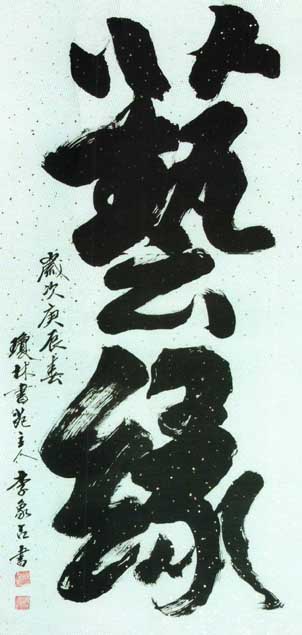 藝緣
歲次庚辰春
瓊林書苑主人李象吉書